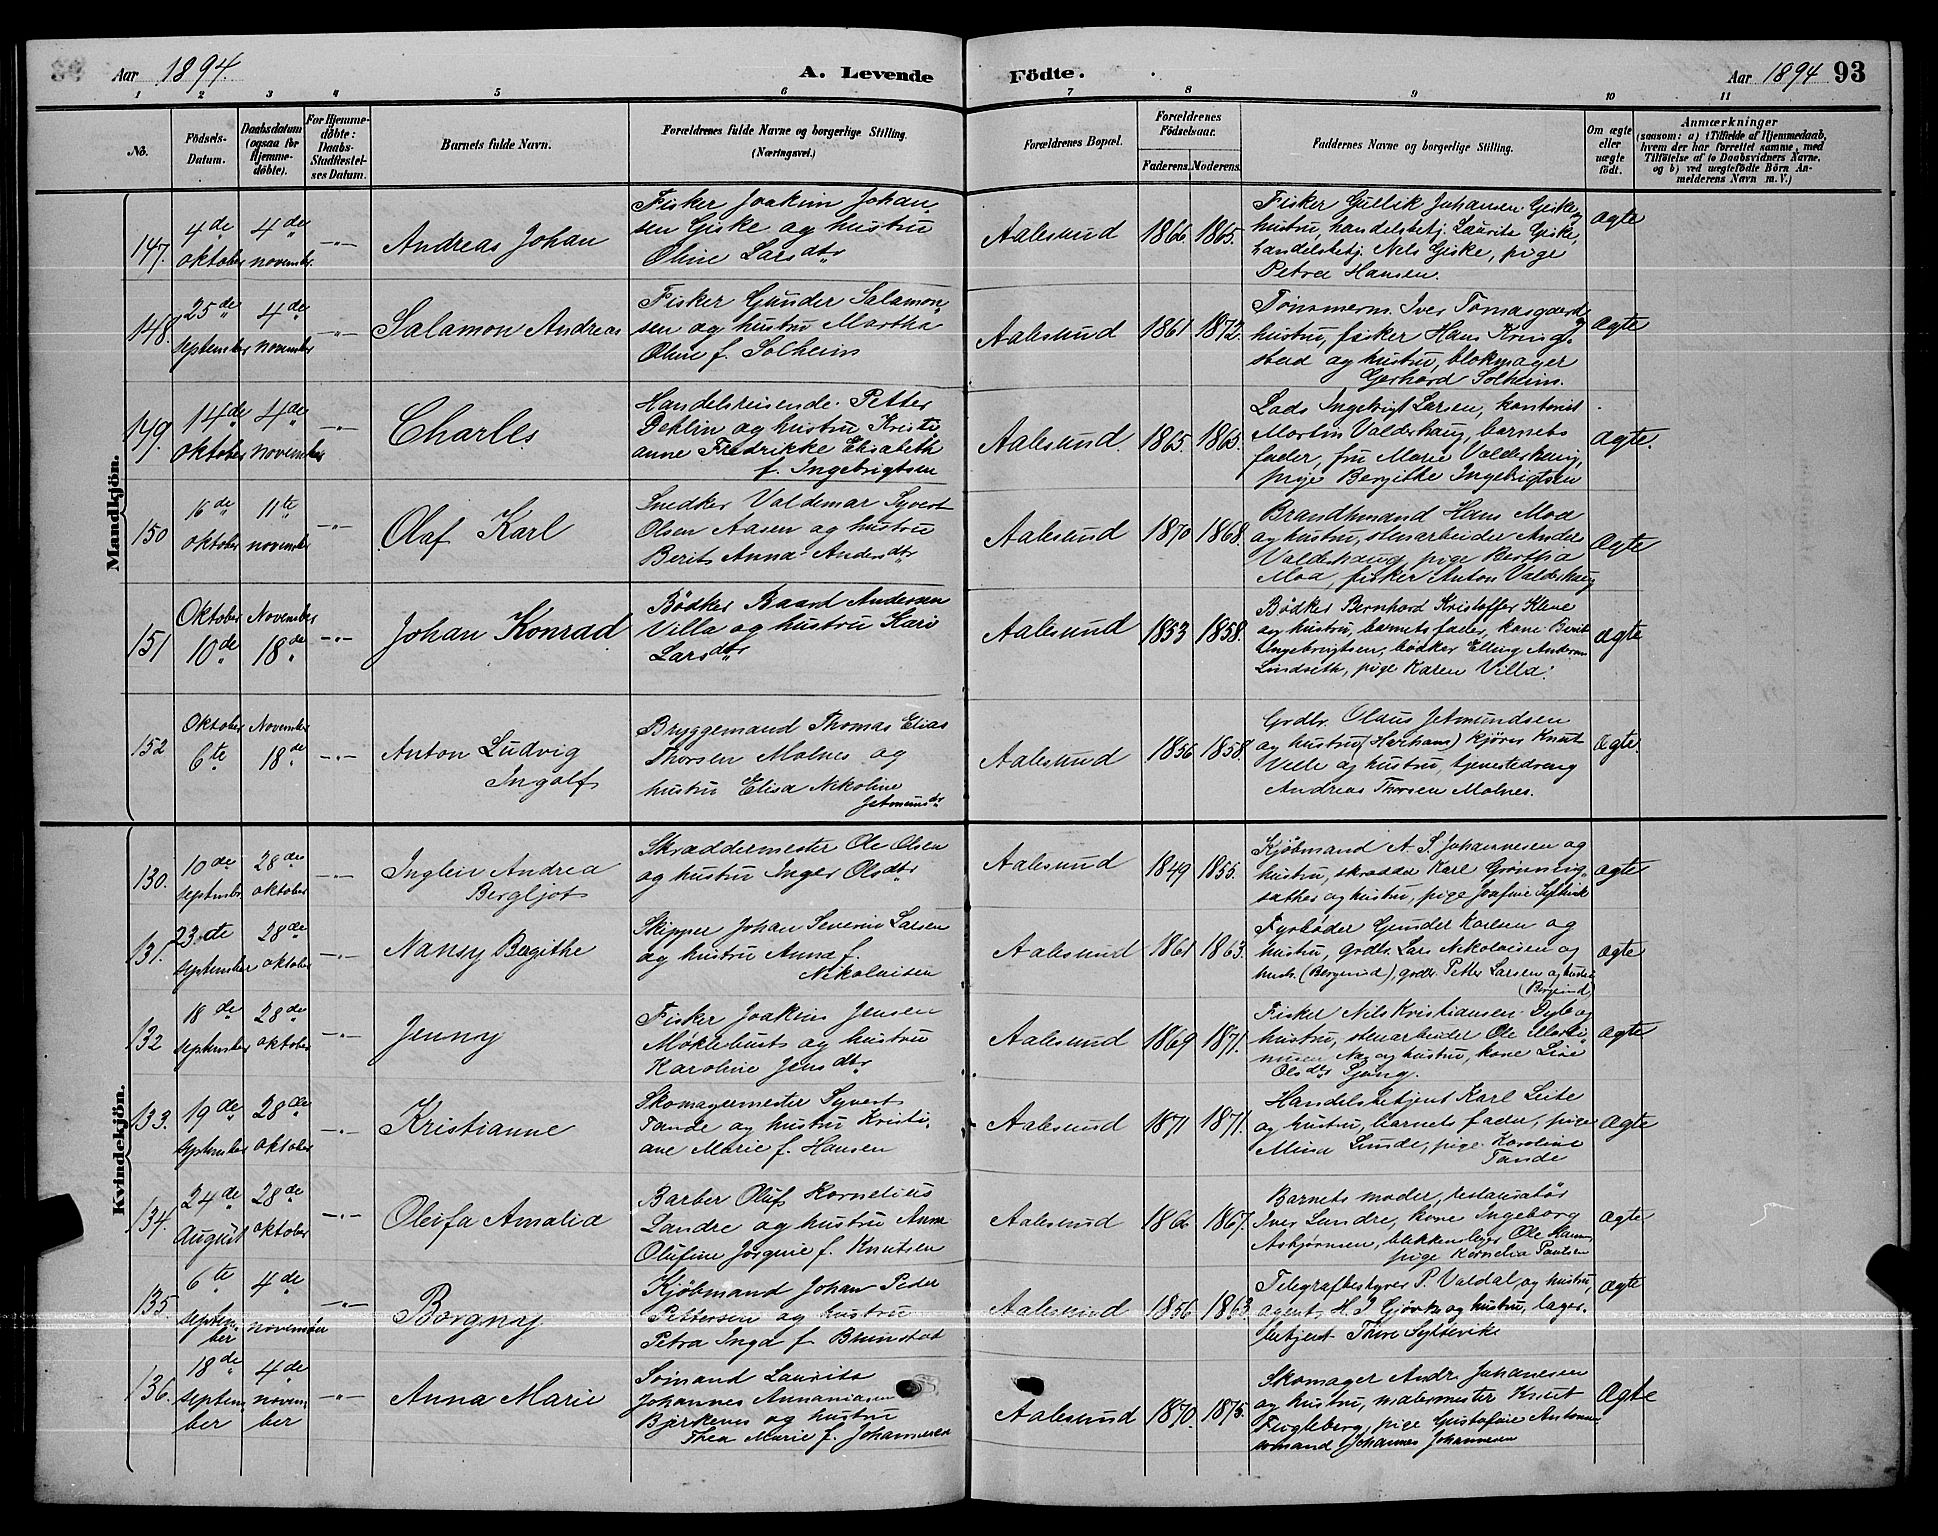 Aar 1894. A. Levende Födte. Aar 1894 93
1 2 3 4 5 6 7 8 9 10 11
No. Födsels-Datum. Daabsdatum (ogsaa for Hjemme-döbte). For Hjemme-döbte: Daabs-Stadfæstel-ses Datum. Barnets fulde Navn. Forældrenes fulde Navne og borgerlige Stilling. (Næringsvei.) Forældrenes Bopæl. Forældrenes Födselsaar. Faderens. Moderens. Faddernes Navne og borgerlige Stilling. Om ægte eller uægte født. Anmærkninger (saasom: a) i Tilfælde af Hjemmedaab, hvem der har forrettet samme, med Tilföielse af to Daabsvidners Navne, og b) ved uægtefödte Börn An-melderens Navn m. V.)
Mandkjön.
147. 4de oktober 4de november -"- Andreas Johan
Fisker Joakim Johan-
sen Giske og hustru
Oline Larsdtr
Aalesund 1866 1865.
Fisker Gullik Johansen Giske og
hustru, handelsbetj. Laurits Giske,
handelsbetj. Nels Giske, pige
Petra Hansen.
ægte
148. 25de september 4de november -"- Salamon Andreas
Fisker Gunder Salamon-
sen og hustru Martha
Oline f. Solheim
Aalesund 1861 1872.
Tønnderm. Iver Tomasgaard
hustru, fisker Hans Kring-
stad og hustru, blokmager
Gerhard Solheim.
ægte
149. 14de oktober 4de november -"- Charles
Handelsreisende Petter
Dehlin og hustru Kristi
anne Fredrikke Elisabeth
f. Ingebrigtsen
Aalesund. 1865 1865.
Lods Ingebrigt Larsen, kontorist
Martin Valderhaug, barnets
fader, fru Marie Valderhaug,
pige Bergithe Ingebrigtsen
ægte.
150 16de oktober 11te november -"- Olaf Karl
Snedker Valdemar Syvert
Olsen Aasen og hustru
Berit Anna Andersdtr
Aalesund 1870 1868.
Brandtmand Hans Moa
og hustru, stenarbeider Anders
Valderhaug, pige Berthia
Moa, fisker Anton Valderhaug
ægte
151 Oktober 10de November 18de -"- Johan Konrad
Bödker Baard Andersen
Villa og hustru Kari
Larsdtr
Aalesund 1853 1858.
Bödker Bernhard Kristoffer Kleve
og hustru, barnets fader, kone Berit
Ingebrigtsen, bödker Elling Andersen
Lindseth, pige Karen Villa.
ægte
152 Oktober 6te November 18de -"- Anton Ludvig
Ingolf
Bryggemand Thomas Elias
Thorsen Molnes og
hustru Elisa Nikoline
Jetmundsdtr
Aalesund 1856 1858
Grdbr. Olaus Jetmundsen
og hustru (Harhams) kjører Knut
Velle og hustru, tjenestedreng
Andreas Thorsen Molnes.
ægte.
Kvindekjön.
130. 10de september 28de oktober -"- Andrea
Bergljot
Skræddermester Ole Olsen
og hustru Inger Olsdtr
Aalesund 1849 1855.
Kjöbmand A. S. Johannesen og
hustru, skrædder Karl
og hustru, pige Josefine
ægte
131. 23de september 28de oktober -"- Nansy Bergithe
Skipper Johan Severin Larsen
og hustru Anna f.
Nikolaisen
Aalesund 1861 1863.
Fyrbøder Gunder Karlsen og
hustru, grdbr. Lars Nikolaisen og
hustr. (Borgund), grdbr. Petter Larsen og hustru
(Borgund)
ægte
132 18de september 28de oktober -"- Jenny
Fisker Joakim Jensen
Møklebust og hustru
Karoline Jensdtr
Aalesund 1869 1871.
Fisker Nils Kristiansen Dyb og
hustru, stenarbeider Ole Marti-
nusen og hustru, kone Lise
Olsdtr
ægte
133. 19de september 28de oktober -"- Kristianne
Skomagermester Syvert
Tande og hustru Kristi-
ane Marie f. Hansen
Aalesund 1871 1871.
Handelsbetjent Karl Leite
og hustru, barnets fader, pige
Mina Lunde, pige Karoline
Tande
ægte
134. 24de August 28de oktober -"- Oleifa Amalia
Barber Oluf Kornelius
Landre og hustru Anne
Olufine Jørgine f. Knutsen
Aalesund 1866 1867.
Barnets moder, restauratør
Iver Landre, kone Ingeborg
Asbjørnsen, blikkenslager Ole Hamn
pige Kornelia Paulsen
ægte
135 6te septem-ber 4de november -"- Borgny
Kjöbmand Johan Peder
Pettersen og hustru
Petra Inga f. Brunstad
Aalesund 1856 1863
Telegrafbestyrer P. Valdal og hustru,
agent H. J. Gjørtz og hustru, lager-
betjent Thore Syltevike
ægte
136. 18de septem-ber 4de novem-ber -"- Anna Marie
Sømand Laurits
Johannes Annaniasen
Bjerknes og hustru
Thea Marie f. Johannesen
Aalesund 1870. 1875.
Skomager Andr. Johanesen
og hustru, malermester Knut
Fugleberg, pige Gustafine Antonsen
sømand Johannes Johannesen
ægte